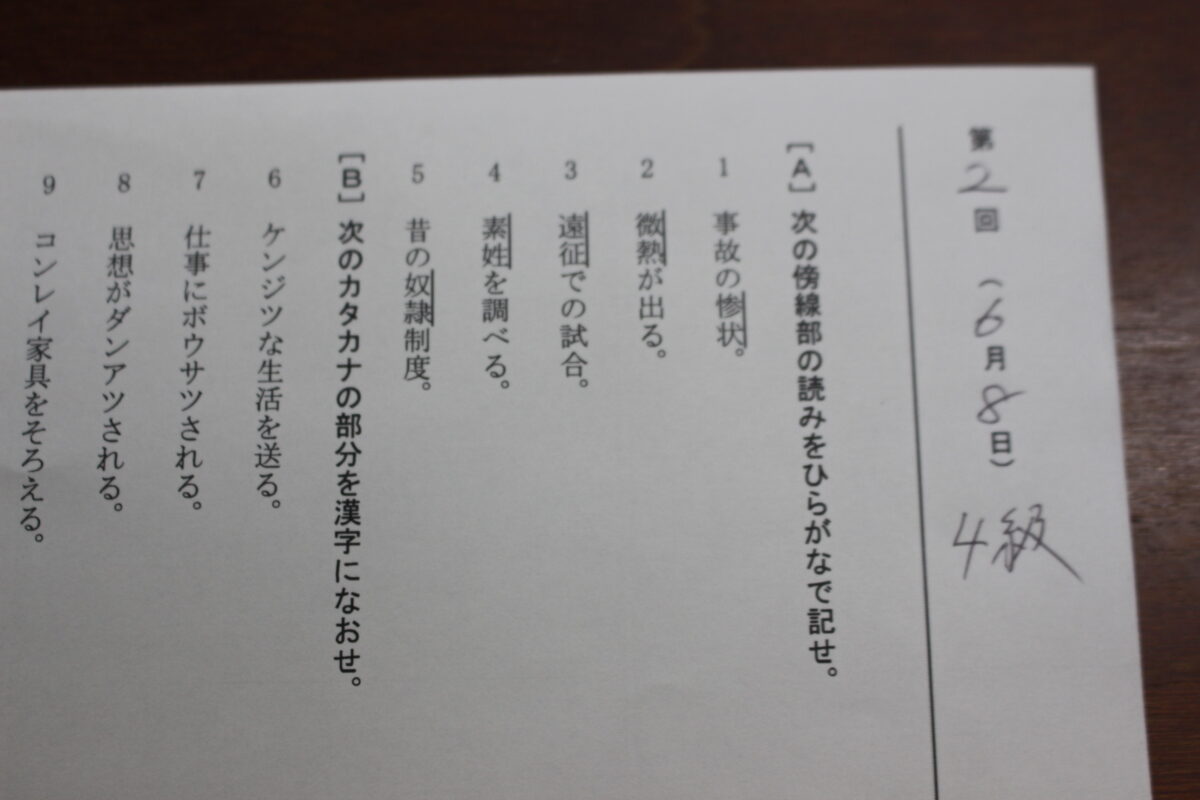 第2回 (6月8日) 4級
[A] 次の傍線部の読みをひらがなで記せ。
1 事故の惨状。
2 微熱が出る。
3 遠征での試合。
4 素姓を調べる。
5 昔の奴隷制度。
[B] 次のカタカナの部分を漢字になおせ。
6 ケンジツな生活を送る。
7 仕事にボウサツされる。
8 思想がダンアツされる。
9 コンレイ家具をそろえる。